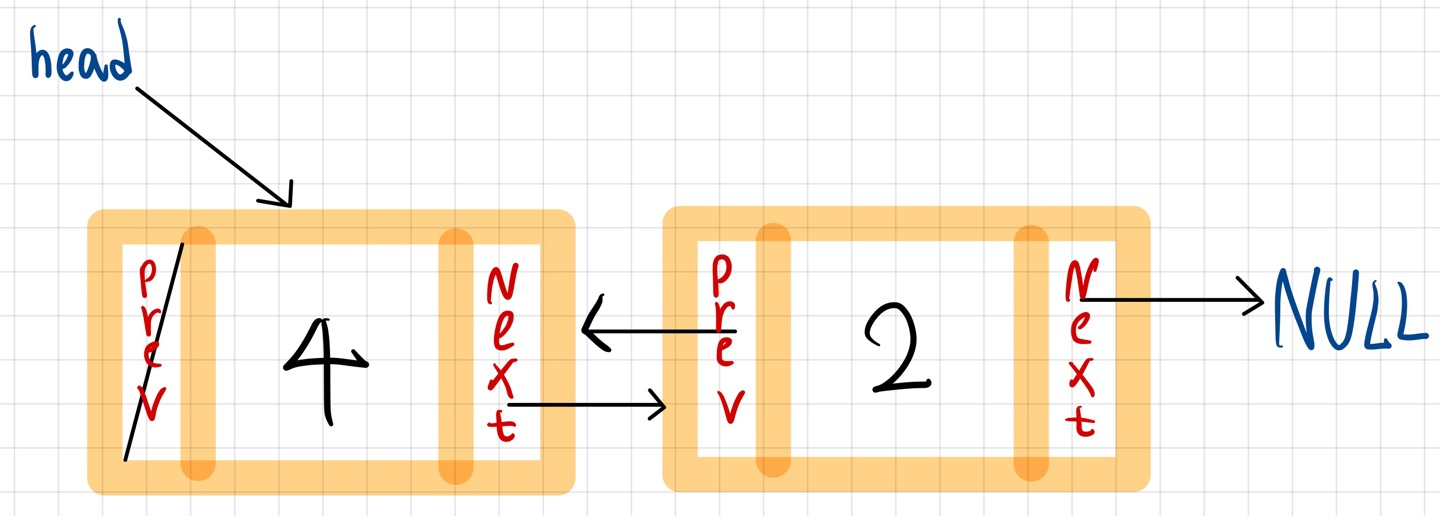 head
Prev
4
Next
Prev
2
Next
NULL